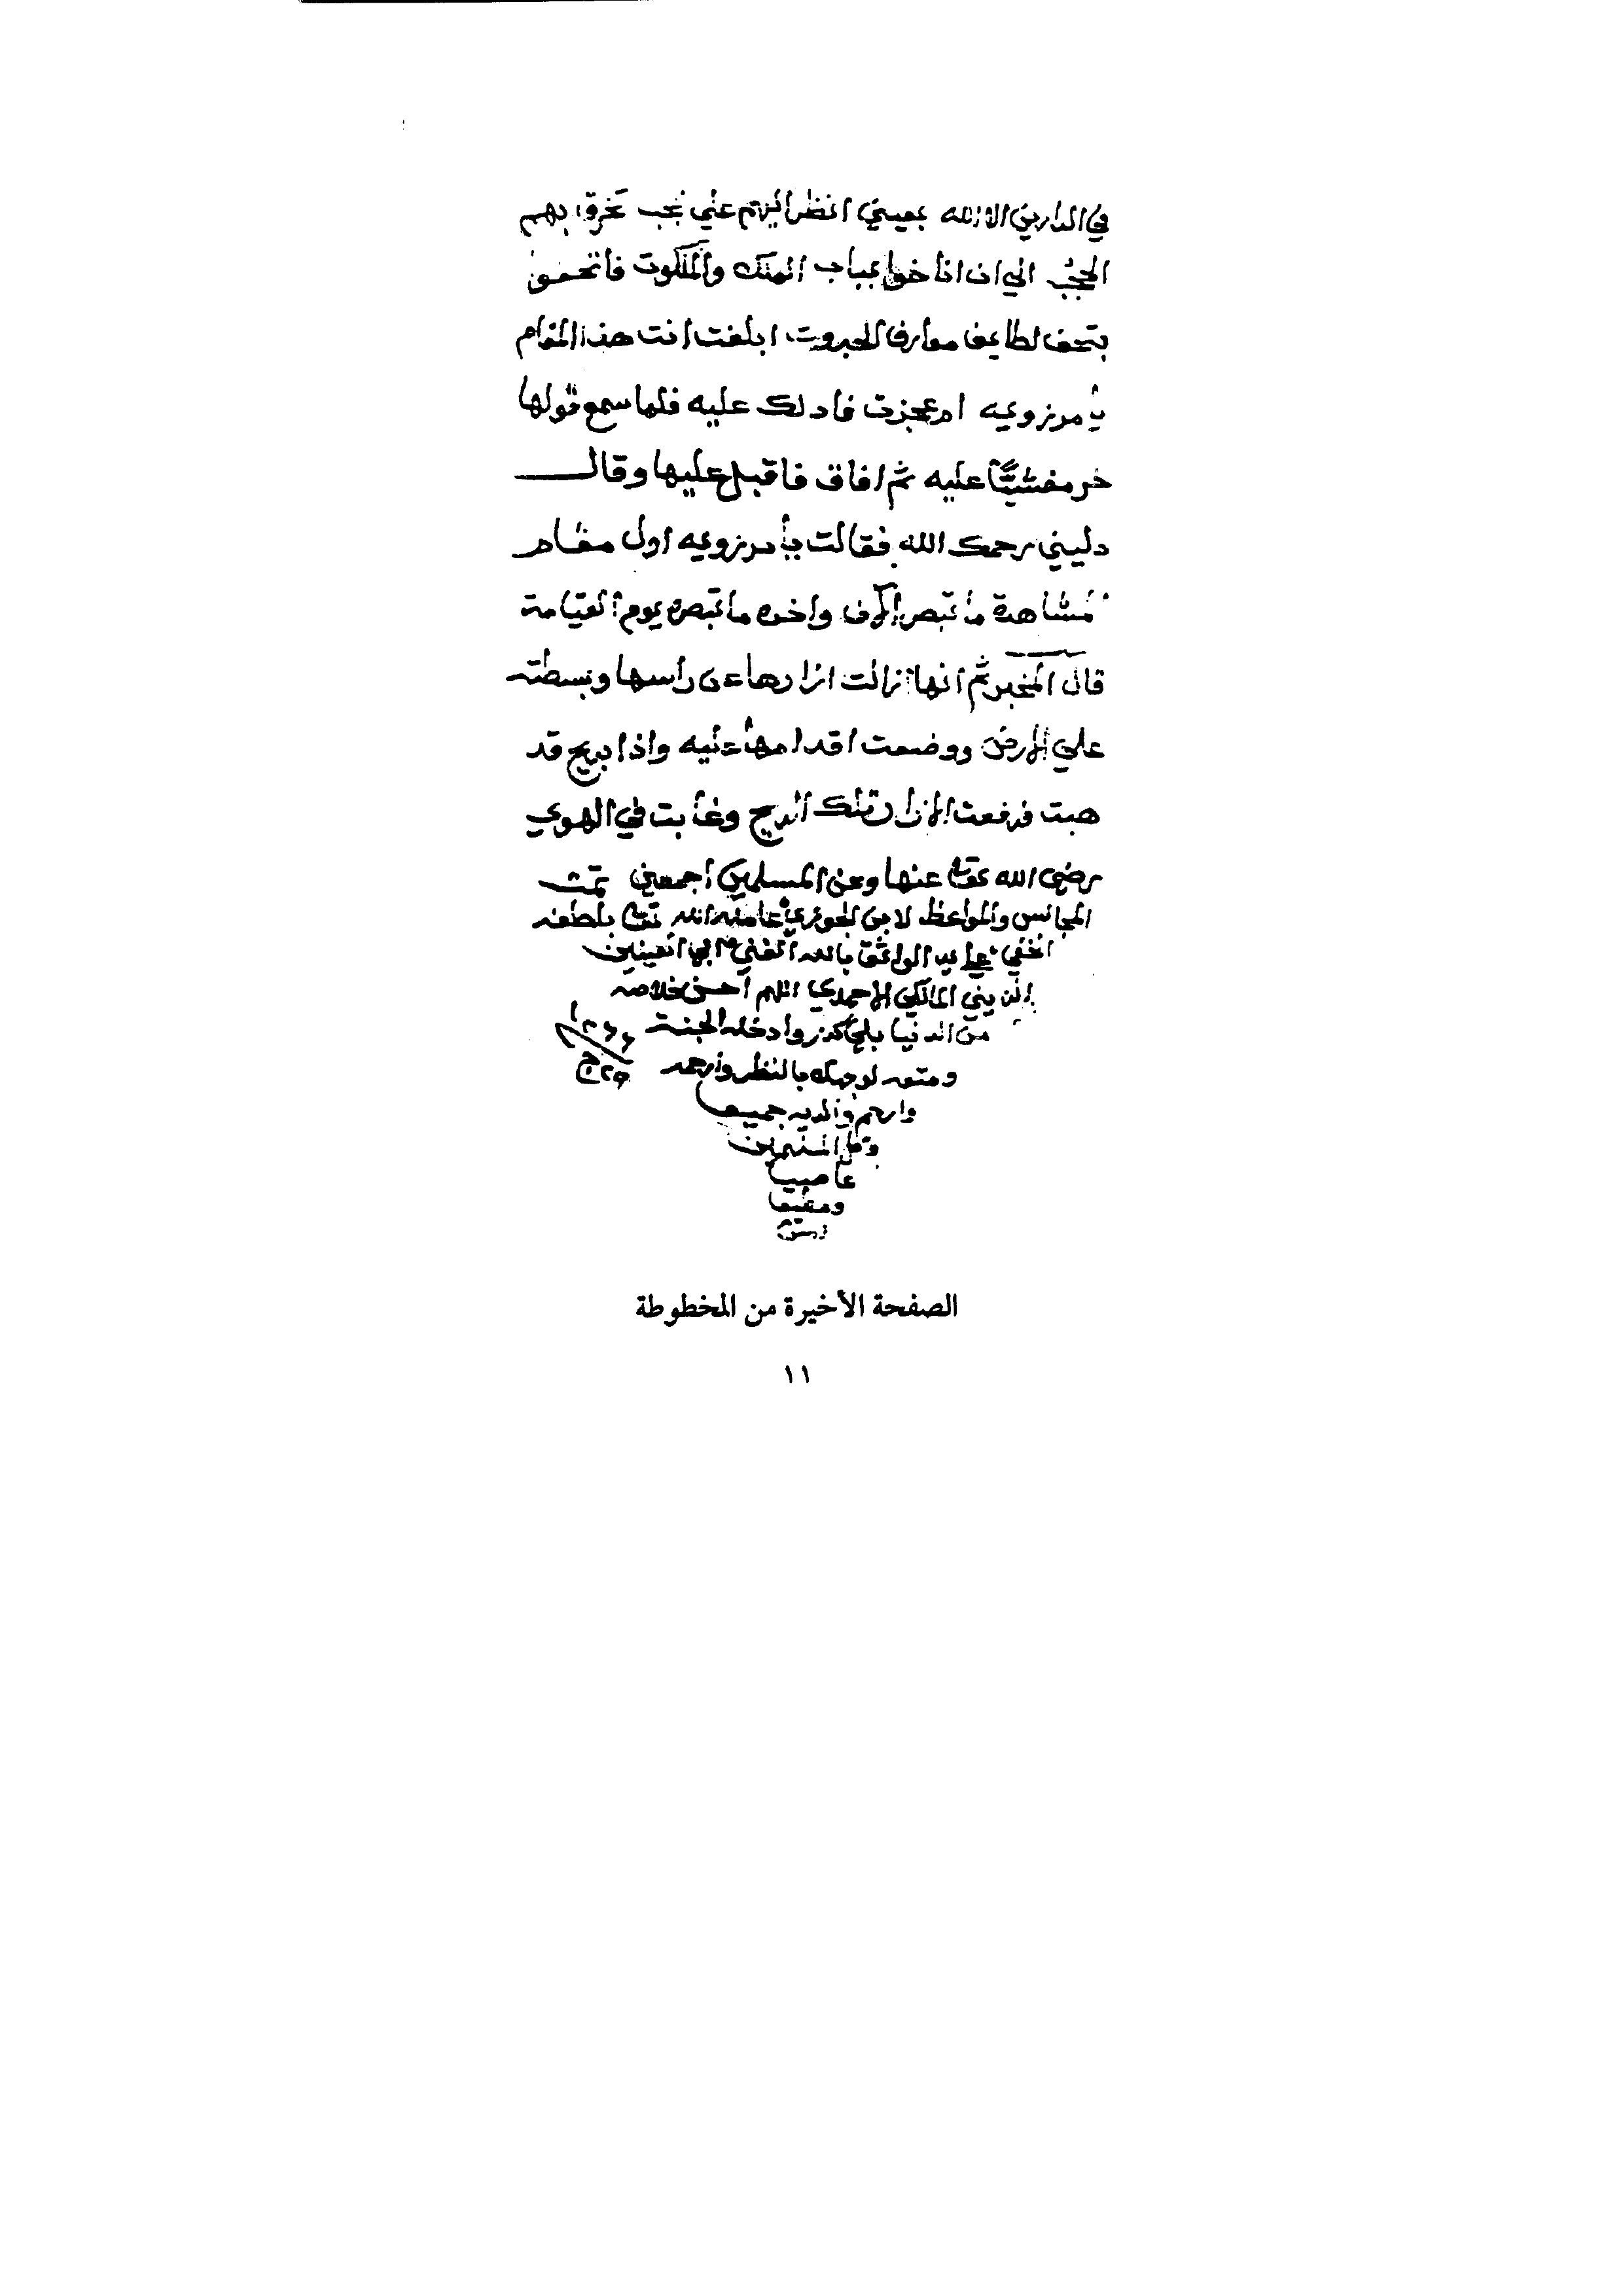 في الدارين الا الله بعيني انظر اليهم علي نجب تخرق بهم
الحجب الي ان اناخوا بباب الملك والملكوت فاتحفهم
بتحف لطايف معارف الجبروت ابلغت انت هذا المقام
يا مرزويه ام عجزت فادلك عليه فلما سمع قولها
خر مغشيا عليه ثم افاق فاقبل عليها وقال
دليني رحمك الله فقالت يا مرزويه اول مقام
المشاهدة ما تبصر الان واخره ما تبصره يوم القيامة
قال المخبر ثم انها ازالت ازارها عن راسها وبسطته
علي الارض ووضعت اقدامها عليه واذا بريح قد
هبت فرفعت الازار تلك الريح وغابت في الهوي
رضي الله تعالى عنها وعن المسلمين اجمعين تمت
المجالس والمواعظ لابن الجوزي عامله الله تعالى بلطفه
الخفي علي يد الواثق بالله الغني ابي العينين
المالكي الاحمدي اللهم احسن خلاصه
من الدنيا بلا كدر وادخله الجنة
ومتعه لوجهك بالنظر وارحمه
وارحم والديه جميعا
وكل المسلمين
الصفحة الأخيرة من المخطوطة
١١